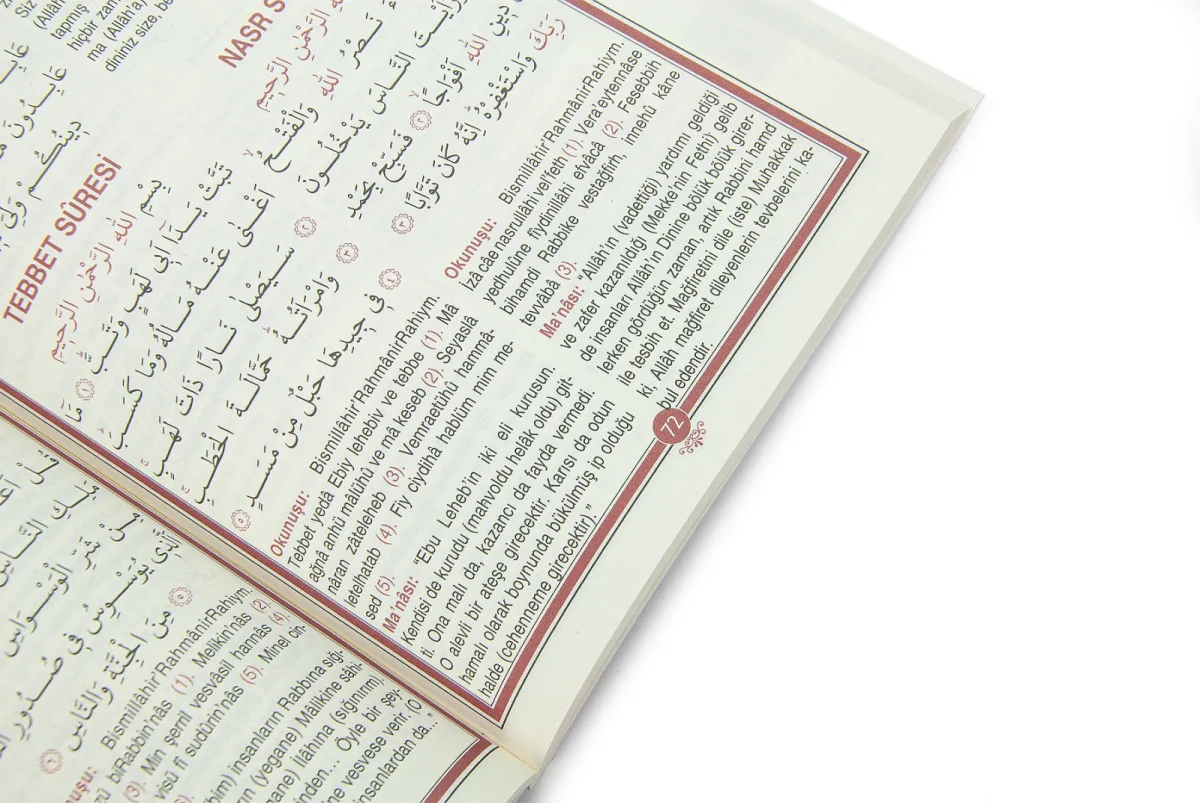 Siz
(Allân'a)
tapmış
hiçbir zam
ma (Allân'a)
dininiz size, be
NASR S
الرَّحْمٰنِ الرَّحِيمِ
نَصْرُ اللّٰهِ وَالْفَتْحُ ۙ
وَرَاَيْتَ النَّاسَ يَدْخُلُونَ
دِينِ اللّٰهِ اَفْوَاجًا ۙ ٢ فَسَبِّحْ بِحَمْدِ
رَبِّكَ وَاسْتَغْفِرْهُ اِنَّهُ كَانَ تَوَّابًا ٣
Okunuşu: Bismillâhir'Rahmânir'Rahiym.
İzâ câe nasrullâhi vel'feth (1). Vera'eytennâse
yedhulûne fiydinillâhi efvâcâ (2). Fesebbih
bihamdi Rabbike vestağfirh, innehû kâne
tevvâbâ (3).
Ma'nâsı: “Allân'ın (vadettiği) yardımı geldiği
ve zafer kazanıldığı (Mekke'nin Fethi) gelib
de insanları Allân'ın Dinine bölük bölük girer-
lerken gördüğün zaman, artık Rabbini hamd
ile tesbih et. Mağfiretini dile (iste) Muhakkak
ki, Allâh mağfiret dileyenlerin tevbelerini ka-
bul edendir.
TEBBET SÛRESİ
بِسْمِ اللّٰهِ الرَّحْمٰنِ الرَّحِيمِ
تَبَّتْ يَدَٓا اَبِى لَهَبٍ وَتَبَّ ١ مَٓا
اَغْنٰى عَنْهُ مَالُهُ وَمَا كَسَبَ
٢ سَيَصْلٰى نَارًا ذَاتَ لَهَبٍ
٣ وَامْرَاَتُهُ حَمَّالَةَ الْحَطَبِ
٤ فِى جِيدِهَا حَبْلٌ مِنْ مَسَدٍ ٥
Okunuşu: Bismillâhir'Rahmânir'Rahiym.
Tebbet yedâ Ebiy lehebiv ve tebbe (1). Mâ
ağnâ anhü mâlühû ve mâ keseb (2). Seyaslâ
nâran zâteleheb (3). Vemraetühü hammâ-
letelhatab (4). Fiy ciydihâ hablüm mim me-
sed (5).
Ma'nâsı: “Ebu Leheb'in iki eli kurusun.
Kendisi de kurudu (mahvoldu helâk oldu) git-
ti. Ona malı da, kazancı da fayda vermedi
O alevli bir ateşe girecektir. Karısı da odun
hamalı olarak boynunda bükülmüş ip olduğu
halde (cehenneme girecektir).”
72
اَلَّذِى يُوَسْوِسُ فِى صُدُورِ
٥ مِنَ الْجِنَّةِ وَالنَّاسِ ٦
nuşu: Bismillâhir'Rahmânir'Rahiym.
zü biRabbin'nâs (1). Melikin'nâs (2).
(3). Min şerril vesvâsil hannâs (4).
visü fî sudûrin'nâs (5). Minel cin-
(6).
bim) insanların Rabbına sığı-
rın (yegane) Mâlikine sâhi-
ane) İlâhına (sığınırım),
inden... Öyle bir şey-
ine vesvese verir. (O
insanlardan da...”